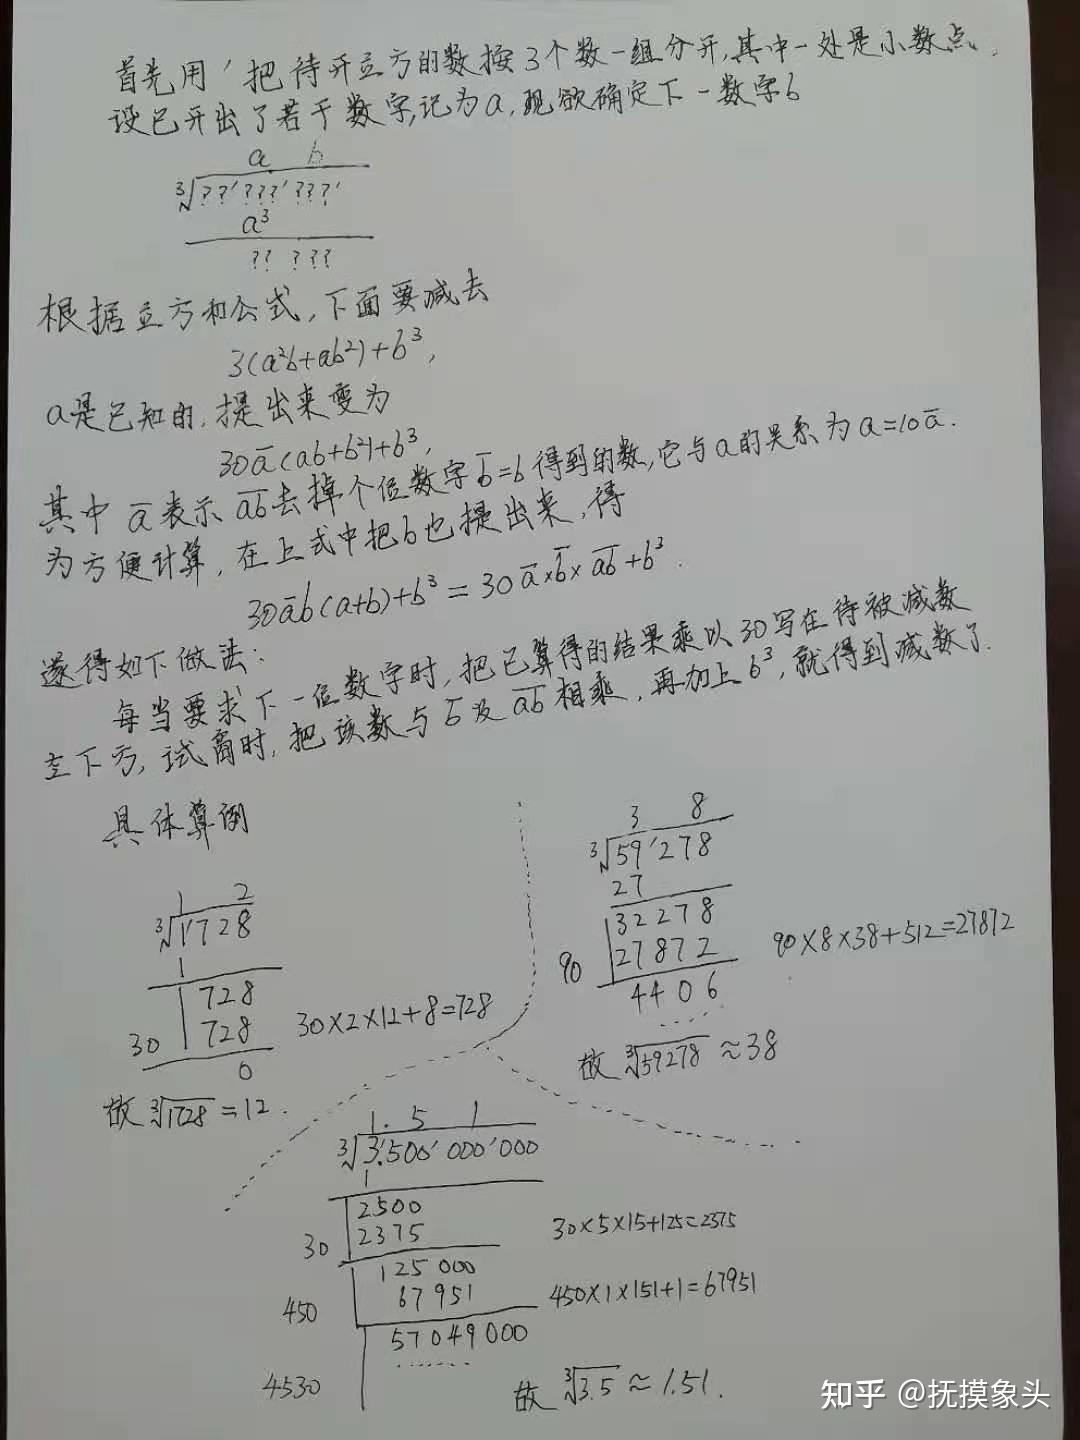 首先用 ' 把待开立方的数按3个数一组分开,其中一处是小数点.
设已开出了若干数字,记为a,现欲确定下一数字b
a b
∛??'???'???'
a³
?? ???
根据立方和公式,下面要减去
3(a²b+ab²)+b³,
a是已知的,提出来变为
30a̅(ab+b²)+b³,
其中 a̅ 表示 a̅b̅ 去掉个位数字b̅=b得到的数,它与a的关系为a=10a̅.
为方便计算,在上式中把b也提出来,得
30a̅b(a+b)+b³=30a̅×b̅×a̅b̅+b³.
遂得如下做法:
每当要求下一位数字时,把已算得的结果乘以30写在待被减数
左下方,试商时,把该数与b̅及a̅b̅相乘,再加上b³,就得到减数了.
具体算例
1 2
∛1'728
1
728
30 728 30×2×12+8=728
0
故∛1728=12.
3 8
∛59'278
27
32278
90 27872 90×8×38+512=27872
4406
......
故 ∛59278≈38
1. 5 1
∛3.500'000'000
1
2500
30 2375 30×5×15+125=2375
125000
450 67951 450×1×151+1=67951
57049000
4530 ......
故 ∛3.5≈1.51.
知乎 @抚摸象头